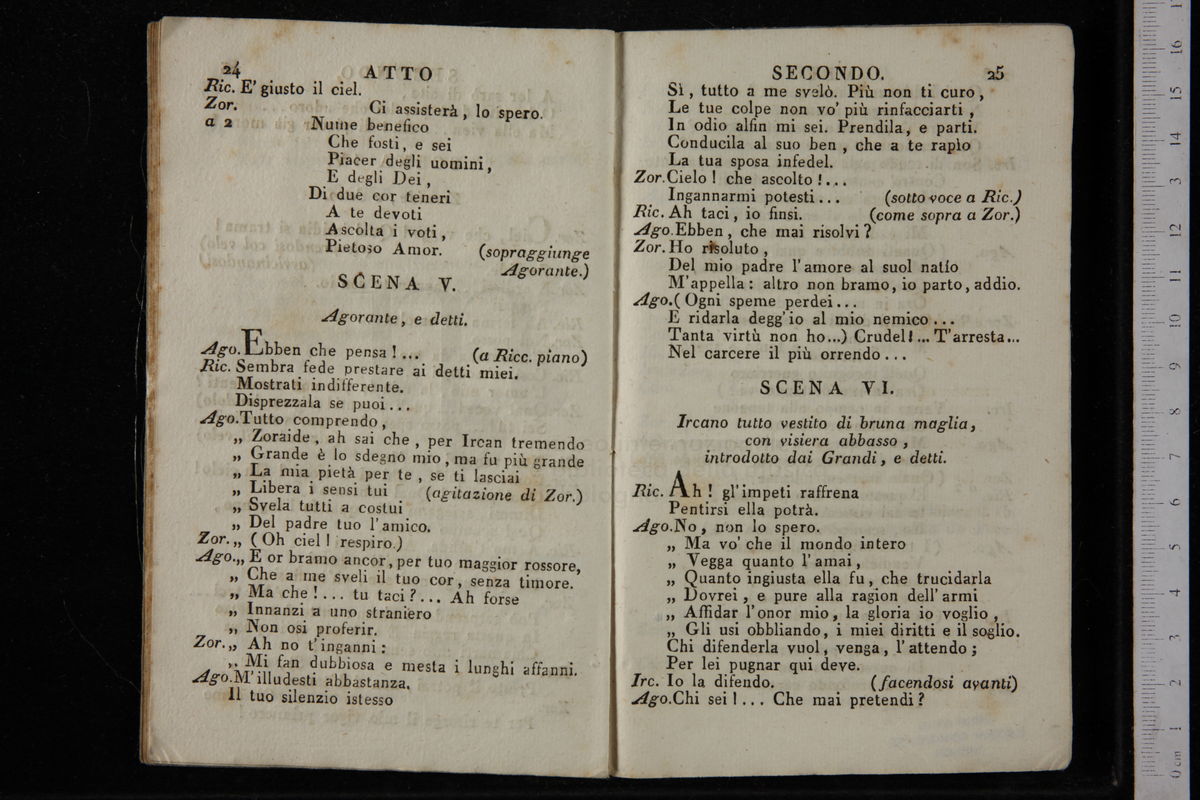 24 ATTO
Ric. E' giusto il ciel.
Zor. Ci assisterà, lo spero.
a 2 Nume benefico
Che fosti, e sei
Piacer degli uomini,
E degli Dei,
Di due cor teneri
A te devoti
Ascolta i voti,
Pietoso Amor. (sopraggiunge
Agorante.)
SCENA V.
Agorante, e detti.
Ago. Ebben che pensa!... (a Ricc. piano)
Ric. Sembra fede prestare ai detti miei.
Mostrati indifferente.
Disprezzala se puoi...
Ago. Tutto comprendo,
„ Zoraide, ah sai che, per Ircan tremendo
„ Grande è lo sdegno mio, ma fu più grande
„ La mia pietà per te, se ti lasciai
„ Libera i sensi tui (agitazione di Zor.)
„ Svela tutti a costui
„ Del padre tuo l'amico.
Zor. „ (Oh ciel! respiro.)
Ago. „ E or bramo ancor, per tuo maggior rossore,
„ Che a me sveli il tuo cor, senza timore.
„ Ma che!... tu taci?... Ah forse
„ Innanzi a uno straniero
„ Non osi proferir.
Zor. „ Ah no t'inganni:
„ Mi fan dubbiosa e mesta i lunghi affanni.
Ago. M'illudesti abbastanza.
Il tuo silenzio istesso
SECONDO. 25
Sì, tutto a me svelò. Più non ti curo,
Le tue colpe non vo' più rinfacciarti,
In odio alfin mi sei. Prendila, e parti.
Conducila al suo ben, che a te rapìo
La tua sposa infedel.
Zor. Cielo! che ascolto!...
Ingannarmi potesti... (sotto voce a Ric.)
Ric. Ah taci, io finsi. (come sopra a Zor.)
Ago. Ebben, che mai risolvi?
Zor. Ho risoluto,
Del mio padre l'amore al suol natìo
M'appella: altro non bramo, io parto, addio.
Ago. (Ogni speme perdei...
E ridarla degg'io al mio nemico...
Tanta virtù non ho...) Crudel!... T'arresta...
Nel carcere il più orrendo...
SCENA VI.
Ircano tutto vestito di bruna maglia,
con visiera abbasso,
introdotto dai Grandi, e detti.
Ric. Ah! gl'impeti raffrena
Pentirsi ella potrà.
Ago. No, non lo spero.
„ Ma vo' che il mondo intero
„ Vegga quanto l'amai,
„ Quanto ingiusta ella fu, che trucidarla
„ Dovrei, e pure alla ragion dell'armi
„ Affidar l'onor mio, la gloria io voglio,
„ Gli usi obbliando, i miei diritti e il soglio.
Chi difenderla vuol, venga, l'attendo;
Per lei pugnar qui deve.
Irc. Io la difendo. (facendosi avanti)
Ago. Chi sei!... Che mai pretendi?
0 cm 1 2 3 4 5 6 7 8 9 10 11 12 13 14 15 16 17